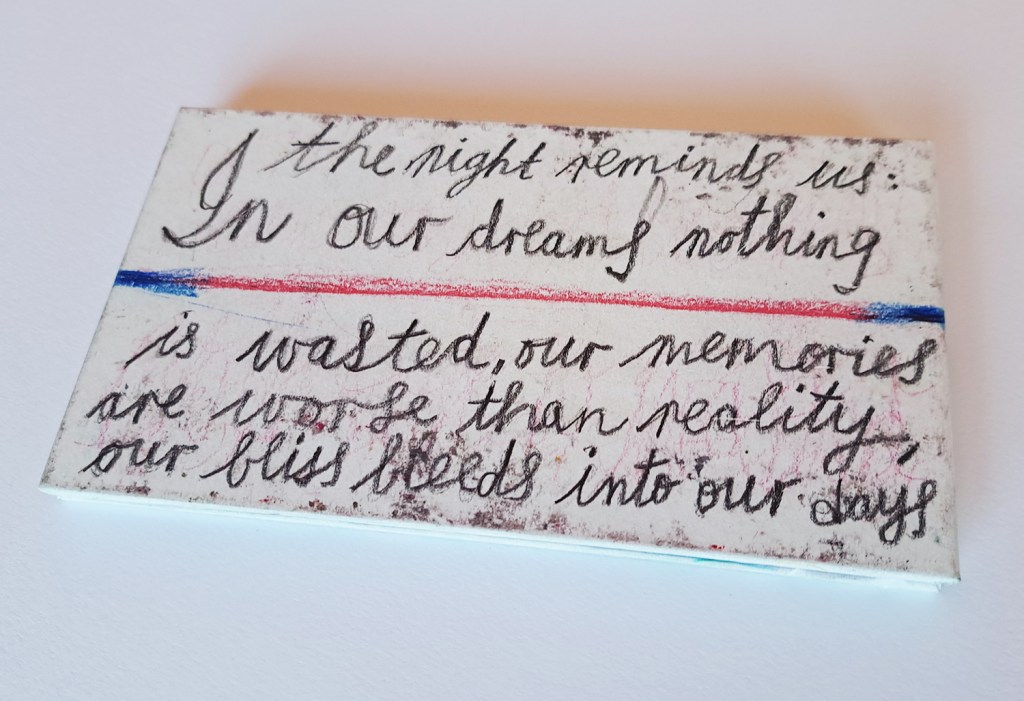 the night reminds us:
In our dreams nothing
is wasted, our memories
are worse than reality,
our bliss bleeds into our days